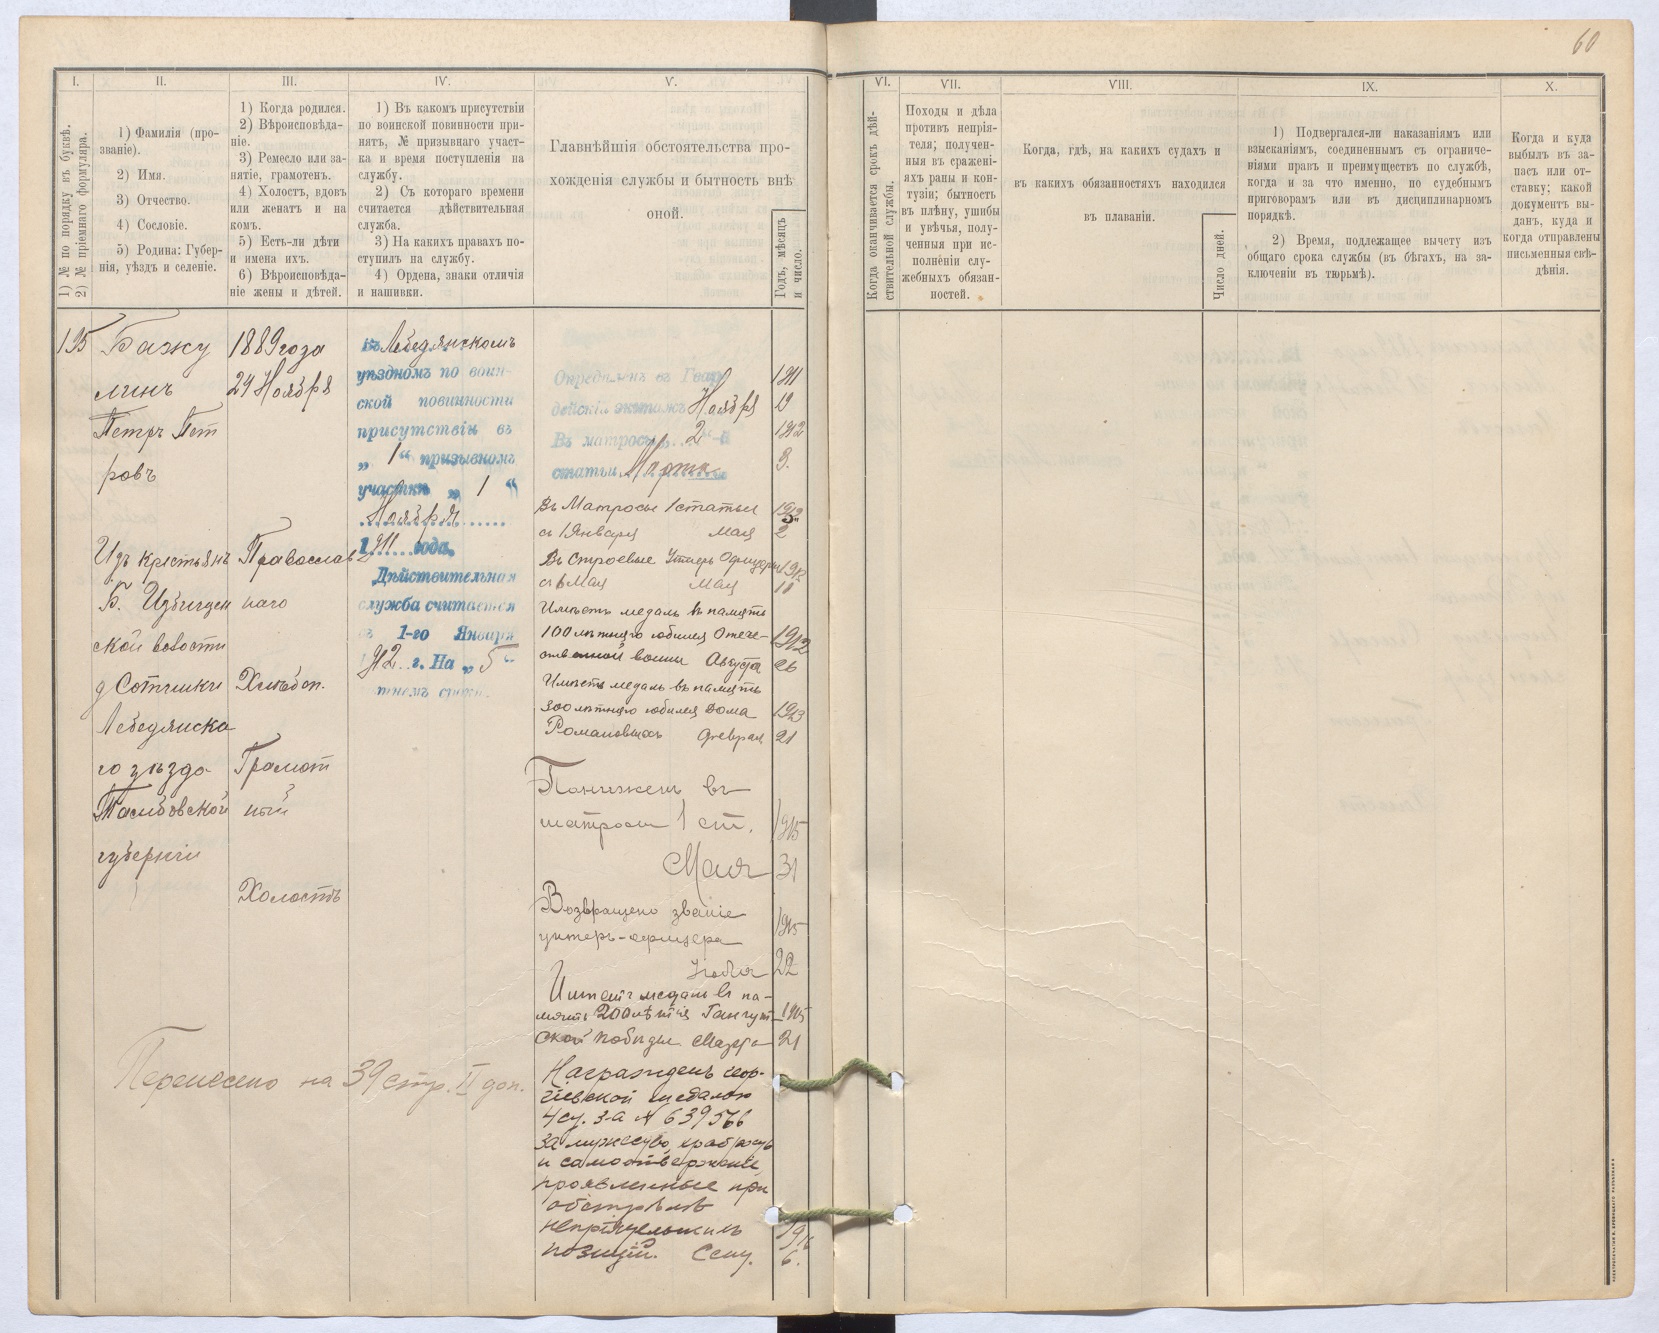 60
I.
1) № по порядку въ буквѣ.
2) № пріемнаго формуляра.
II.
1) Фамилія (про-
званіе).
2) Имя.
3) Отчество.
4) Сословіе.
5) Родина: Губер-
нія, уѣздъ и селеніе.
III.
1) Когда родился.
2) Вѣроисповѣда-
ніе.
3) Ремесло или за-
нятіе, грамотенъ.
4) Холостъ, вдовъ
или женатъ и на
комъ.
5) Есть-ли дѣти
и имена ихъ.
6) Вѣроисповѣда-
ніе жены и дѣтей.
IV.
1) Въ какомъ присутствіи
по воинской повинности при-
нятъ, № призывнаго участ-
ка и время поступленія на
службу.
2) Съ котораго времени
считается дѣйствительная
служба.
3) На какихъ правахъ по-
ступилъ на службу.
4) Ордена, знаки отличія
и нашивки.
V.
Главнѣйшія обстоятельства про-
хожденія службы и бытность внѣ
оной.
Годъ, мѣсяцъ
и число.
VI.
Когда оканчивается срокъ дѣй-
ствительной службы.
VII.
Походы и дѣла
противъ непрія-
теля; получен-
ныя въ сражені-
яхъ раны и кон-
тузіи; бытность
въ плѣну, ушибы
и увѣчья, полу-
ченныя при ис-
полненіи слу-
жебныхъ обязан-
ностей.
VIII.
Когда, гдѣ, на какихъ судахъ и
въ какихъ обязанностяхъ находился
въ плаваніи.
Число дней.
IX.
1) Подвергался-ли наказаніямъ или
взысканіямъ, соединеннымъ съ ограниче-
ніями правъ и преимуществъ по службѣ,
когда и за что именно, по судебнымъ
приговорамъ или въ дисциплинарномъ
порядкѣ.
2) Время, подлежащее вычету изъ
общаго срока службы (въ бѣгахъ, на за-
ключеніи въ тюрьмѣ).
X.
Когда и куда
выбылъ въ за-
пасъ или от-
ставку; какой
документъ вы-
данъ, куда и
когда отправлены
письменныя свѣ-
дѣнія.
195
Бажу
линъ
Петръ Пет
ровъ
Изъ крестьянъ
Б. Избищен
ской волости
д Сотники
Лебедянска
го уѣзда
Тамбовской
губерніи
1889 года
29 Ноября
Православ
наго
Хлѣбоп.
Грамот
ный
Холостъ
въ Лебедянскомъ
уѣздномъ по воин-
ской повинности
присутствіи въ
„ 1 “ призывномъ
участкѣ „ 1 “
Ноября
1911 года.
Дѣйствительная
служба считается
съ 1-го Января
1912 г. На „ 5 “
лѣтнемъ срокѣ.
Опредѣленъ въ Гвар- 1911
дейскій экипажъ Ноября 19
Въ матросы „ 2 “-й 1912
статьи Марта 9.
Въ Матросы 1 статьи
съ 1 Января Мая 2
Въ Строевые Унтеръ Офицеры
съ 6 Мая Мая
Имѣетъ медаль въ память
100 лѣтняго юбилея Отече- 1912
ственной войны Августа 26
Имѣетъ медаль въ память
300 лѣтняго юбилея Дома 1913
Романовыхъ Февраля 21
Пониженъ въ
матросы 1 ст. 1915
Мая 31
Возвращено званіе
унтеръ-офицера 1915
22
Имѣетъ медаль въ па-
мять 200 лѣтія Гангут- 1915
ской побѣды 21
Награжденъ Геор-
гіевской медалью
4 ст. за № 639566
За мужество, храбрость
и самоотверженіе,
проявленные при
обстрѣлѣ
непріятельскихъ 1916
позицій. Сент. 6.
Перенесено на 39 стр. II доп.